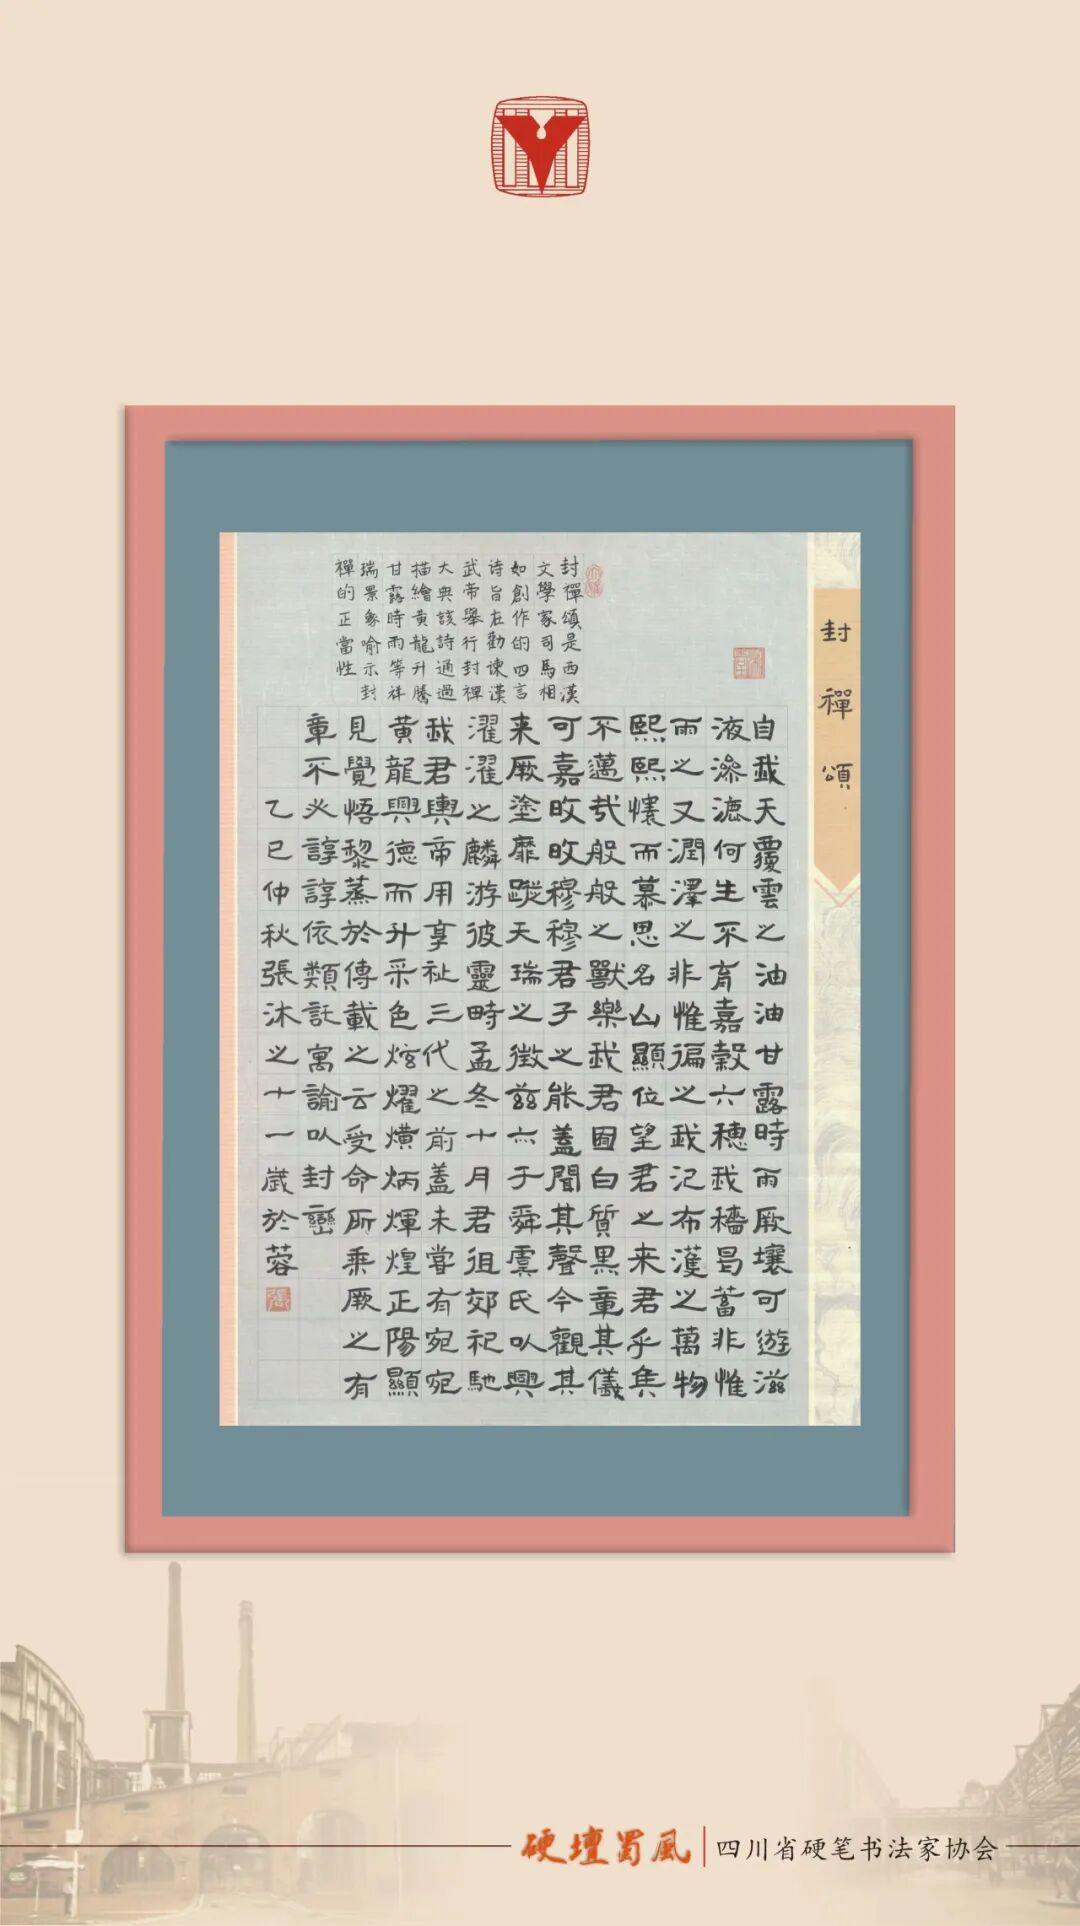 封禪頌
封禪頌是西漢
文學家司馬相
如創作的四言
诗旨在勸諫漢
武帝舉行封禪
大典該詩通過
描繪黄龍升騰
甘露時雨等祥
瑞景象喻示封
禪的正當性
自我天覆雲之油油甘露時雨厥壤可遊滋
液滲漉何生不育嘉穀六穗我穡曷蓄非惟
雨之又潤澤之非惟徧之我氾布濩之萬物
熙熙懷而慕思名山顯位望君之来君乎矦
不邁哉般般之獸樂我君囿白質黑章其儀
可嘉旼旼穆穆君子之能蓋聞其聲今觀其
来厥塗靡蹤天瑞之徵兹亦于舜虞氏以興
濯濯之麟游彼靈畤孟冬十月君徂郊祀馳
我君輿帝用享祉三代之前蓋未嘗有宛宛
黄龍興德而升采色炫燿熿炳煇煌正陽顯
見覺悟黎蒸於傳載之云受命所乘厥之有
章不必諄諄依類託寓諭以封巒
乙巳仲秋張沐之十一歲於蓉
張
硬壇蜀風
四川省硬笔书法家协会